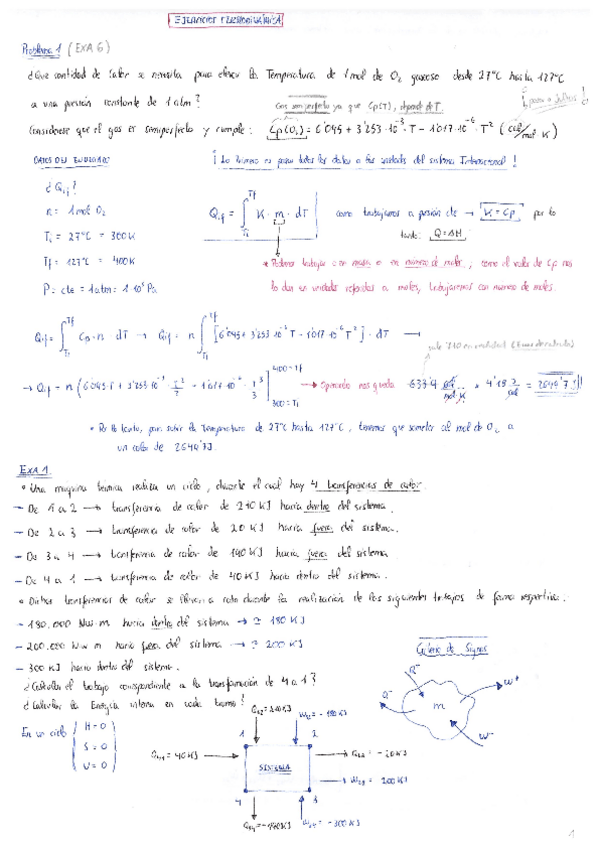 EJERCICIOS TERMODINÁMICA
Problema 1 (EXA 6)
¿Que cantidad de Calor se necesita para elevar la Temperatura de 1 mol de O₂ gaseoso desde 27ºC hasta 127ºC
a una presión constante de 1 atm?
Gas semiperfecto ya que Cp(T), depende de T.
¡ pasar a Julios !
Considerese que el gas es semiperfecto y cumple: Cp(O₂) = 6'045 + 3'253·10⁻³·T - 1'017·10⁻⁶·T² (cal/mol·K)
DATOS DEL ENUNCIADO:
¡ Lo primero es pasar todos los datos a las unidades del sistema Internacional !
¿Qif?
n = 1 mol O₂
Qif = ∫ K · m · dT
como trabajamos a presión cte → K = Cp por lo
tanto: Q = ΔH
Ti = 27ºC = 300 K
Tf = 127ºC = 400 K
P = cte = 1 atm = 1·10⁵ Pa
* Podemos trabajar con masa o con numero de moles, como el valor de Cp nos
lo dan en unidades referidas a moles, trabajaremos con numero de moles.
Qif = ∫ Cp·n dT → Qif = n ∫ [6'045 + 3'253·10⁻³ T - 1'017·10⁻⁶ T²] · dT →
→ Qif = n (6'045 T + 3'253·10⁻³ · T²/2 - 1'017·10⁻⁶ · T³/3) 400 = Tf 300 = Ti → Operando nos queda 633'4 · 4'18 J/cal = 2649'7 J
* Por lo tanto, para subir la temperatura de 27ºC hasta 127ºC, tenemos que someter al mol de O₂ a
un calor de 2649'7J.
EXA 1.
* Una maquina termica realiza un ciclo, durante el cual hay 4 transferencias de calor.
- De 1 a 2 → transferencia de calor de 210 KJ hacia dentro del sistema.
- De 2 a 3 → transferencia de calor de 20 KJ hacia fuera del sistema.
- De 3 a 4 → transferencia de calor de 190 KJ hacia fuera del sistema
- De 4 a 1 → transferencia de calor de 40 KJ hacia dentro del sistema.
* Dichas transferencias de calor se llevan a cabo durante la realización de los siguientes trabajos de forma respectiva.
- 180.000 Nw·m hacia dentro del sistema → 180 KJ
- 200.000 Nw·m hacia fuera del sistema → 200 KJ
- 300 KJ hacia dentro del sistema.
¿Calcular el trabajo correspondiente a la transformación de 4 a 1?
¿Calcular la Energía interna en cada tramo?
Criterio de Signos
Q⁺
W⁺
Q⁻
m
W⁻
En un ciclo
H = 0
S = 0
U = 0
W₁₂ = -180 KJ
1
2
Q₄₁ = 40 KJ
SISTEMA
Q₂₃ = -20 KJ
W₂₃ = 200 KJ
4
3
Q₃₄ = -190 KJ
W₃₄ = -300 KJ
1